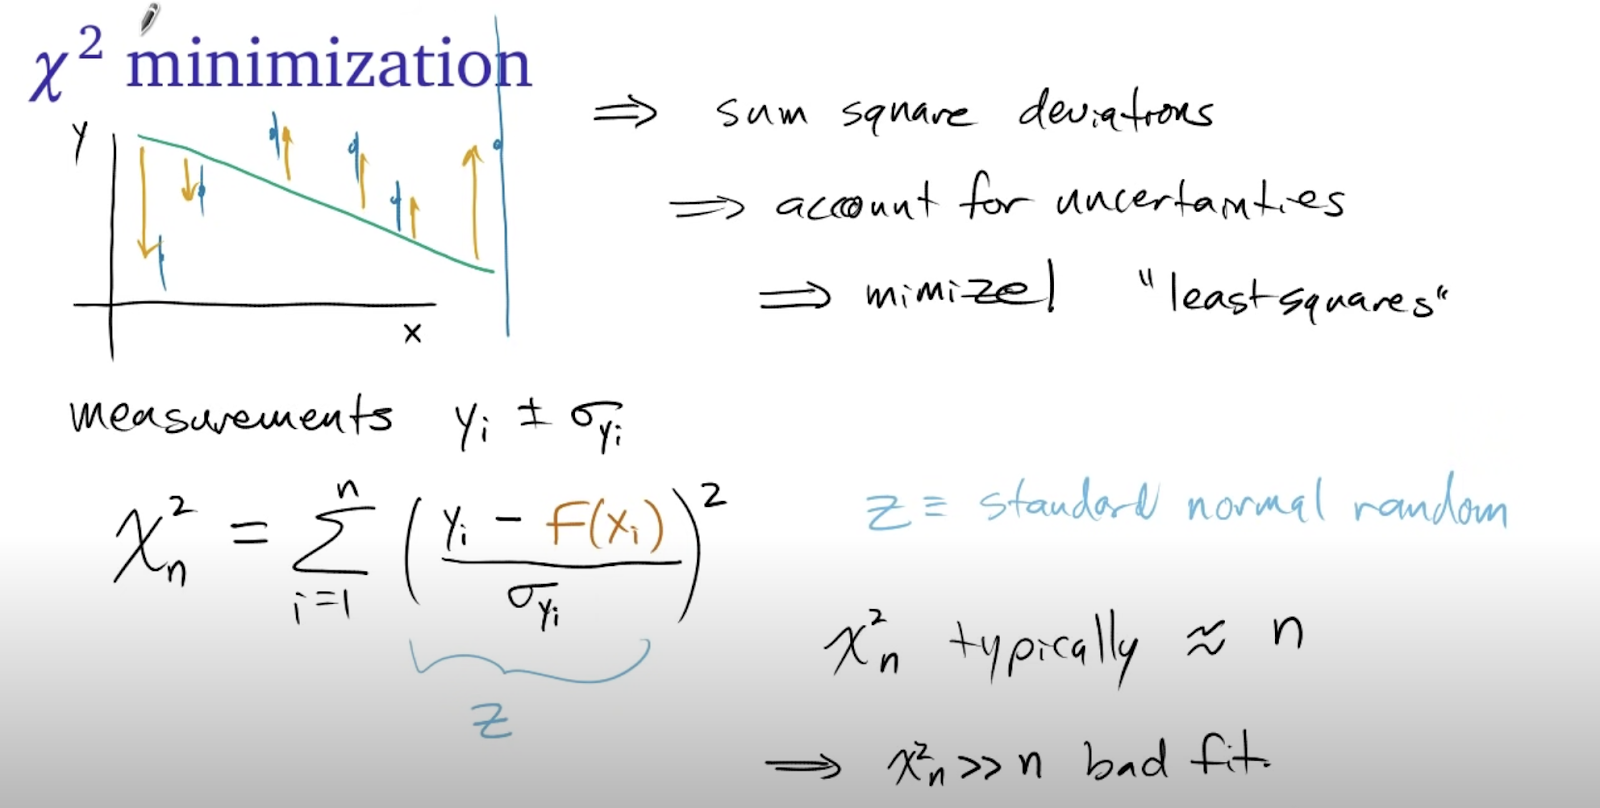 χ² minimization
⇒ sum square deviations
⇒ account for uncertainties
⇒ mimize! "least squares"
y
x
measurements yᵢ ± σ_yᵢ
χ²ₙ = Σⁿᵢ₌₁ ((yᵢ − F(xᵢ)) / σ_yᵢ)²
z
z ≡ standard normal random
χ²ₙ typically ≈ n
⇒ χ²ₙ >> n bad fit.